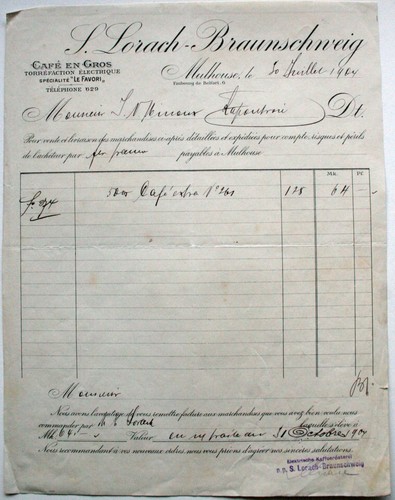 S. Lorach-Braunschweig
CAFÉ EN GROS
TORRÉFACTION ÉLECTRIQUE
SPÉCIALITÉ "LE FAVORI"
TÉLÉPHONE 629
Mulhouse, le 30 Juillet 1904
Faubourg de Belfort
Monsieur Dt.
Pour vente et livraison des marchandises ci-après détaillées et expédiées pour compte, risques et périls
de l'acheteur par payables à Mulhouse
Mk. Pf.
Café extra No 261 128 64 –
Monsieur
Nous avons l'avantage de vous remettre facture aux marchandises que vous avez bien voulu nous
commander par laquelle s'élève à
Mk. 64.– Valeur 31 Octobre 1904
Nous recommandant à vos nouveaux ordres, nous vous prions d'agréer nos sincères salutations.
Elektrische Kaffeerösterei
p.p. S. Lorach-Braunschweig